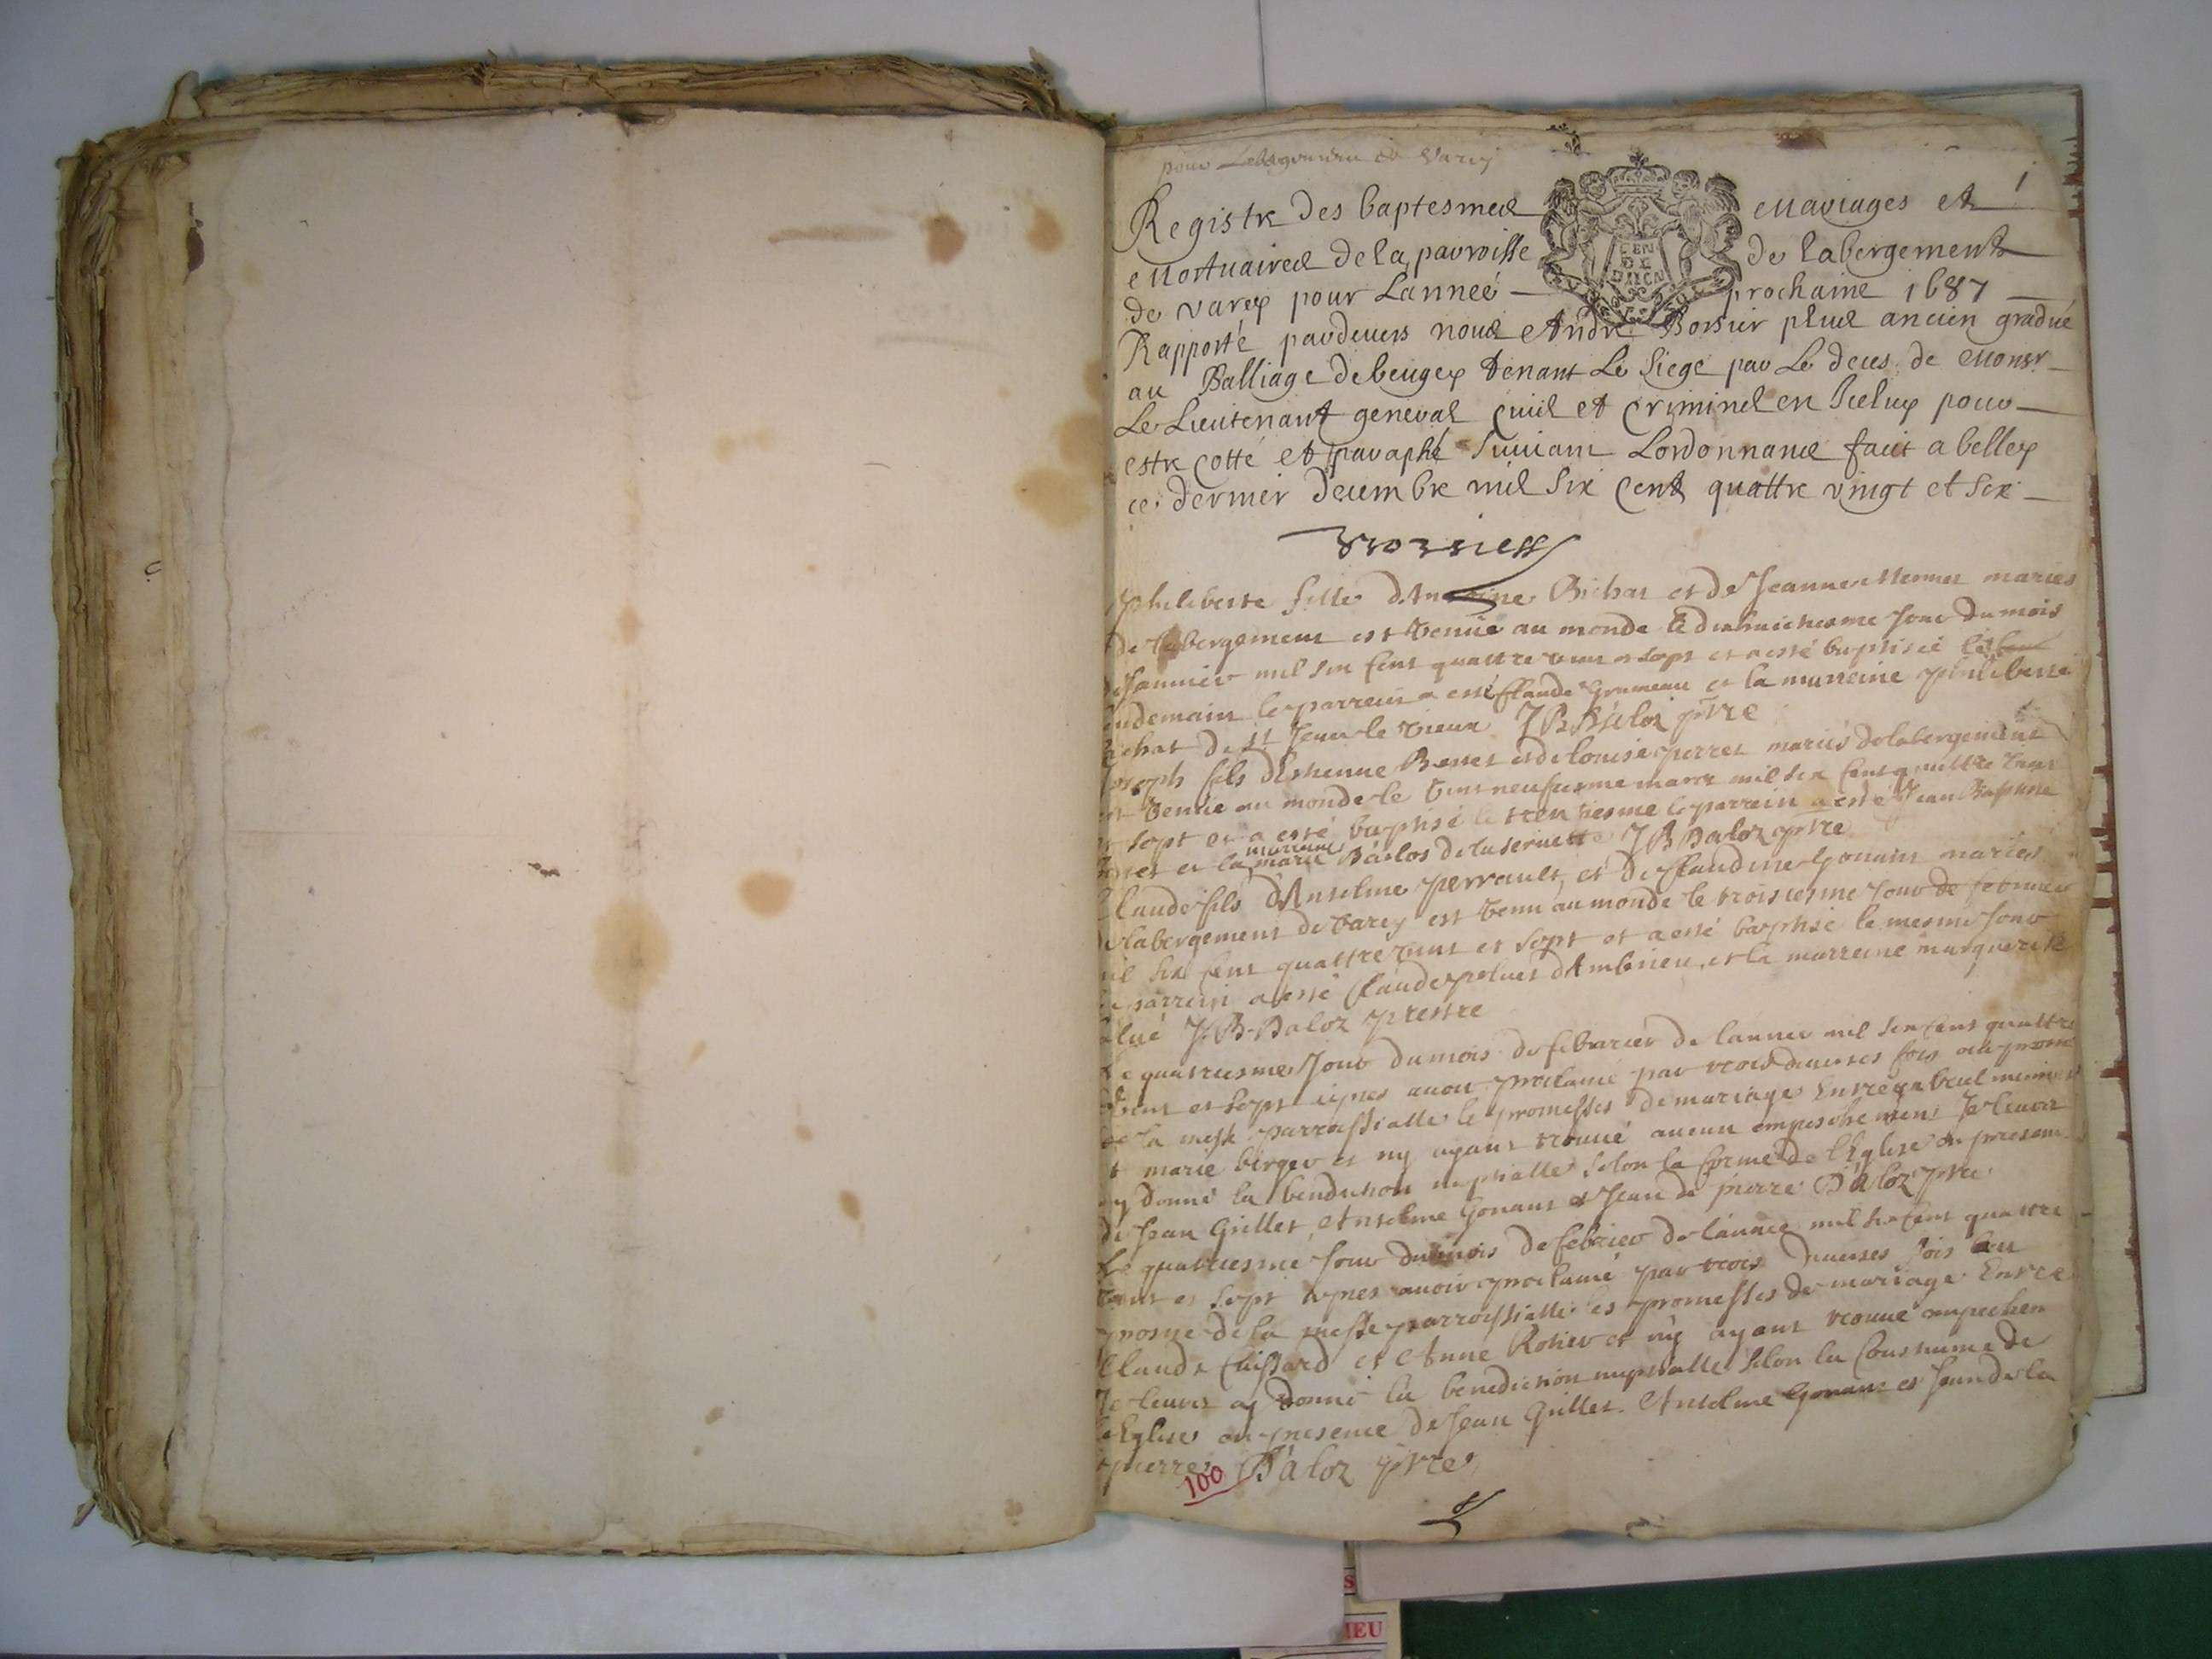 pour Labergement de Varey
1
Registre des baptesmes Mariages et
Mortuaires de la parroisse de labergement
de varey pour Lanneé prochaine 1687
GEN
DE
Rapporté pardevers nous André Borsier plus ancien gradué
au Balliage de beugey tenant Le siege par Le deces de Monsr
Le Lieutenant general civil et criminel en Icelluy pour
estre cotté et paraphé suivant Lordonnance fait a belley
ce dernier decembre mil six cent quattre vingt et six
philiberte fille dAntoine Bichat et de Jeanne Mermet mariés
de labergement est venüe au monde le dixhuictiesme jour du mois
de Janvier mil six cent quattre vint et sept et a esté baptisée le
lendemain le parrein a esté Claude Grumeau et la marreine philiberte
bichat de st Jean le vieux J B Báloz ptre
Joseph fils dEstienne Besset et de louise perret mariés de labergement
est venüe au monde le vint neufiesme mars mil six cent quattre vint
et sept et a esté baptisé le trentiesme le parrein a esté Jean Baptiste
et la marreine marie Báloz de la servette J B Baloz ptre
Claude fils dAnselme perrault et de Claudine Gonant mariés
de labergement de varey est venu au monde le troisiesme jour de febvrier
mil six cent quattre vint et sept et a esté baptisé le mesme jour
le parrein a esté Claude dAmbrieu, et la marreine marguerite
J. B. Baloz prestre
Le quatriesme Jour du mois de febvrier de lannee mil six cent quattre
vint et sept apres avoir proclamé par trois diverses fois au prosne
de la messe parroissialle les promesses de mariage Entre
et marie berger et ny ayant trouvé aucun empeschement Je leurs
ay donné la benediction nuptialle selon la forme de lEglise en presence
de Jean Grillet, Anselme Gonant et Jean de pierre Báloz ptre
Le quatriesme Jour du mois de febvrier de lannee mil six cent quattre
vint et sept apres avoir proclamé par trois diverses fois au
prosne de la messe parroissialle les promesses de mariage Entre
Claude Cuissard et Anne Rosier et ny ayant trouvé empechem
Je leurs ay donné la benediction nuptialle selon la coustume de
lEglise en presence de Jean Grillet. Anselme Gonant et Jean de la
pierre Báloz ptre
100
IEU